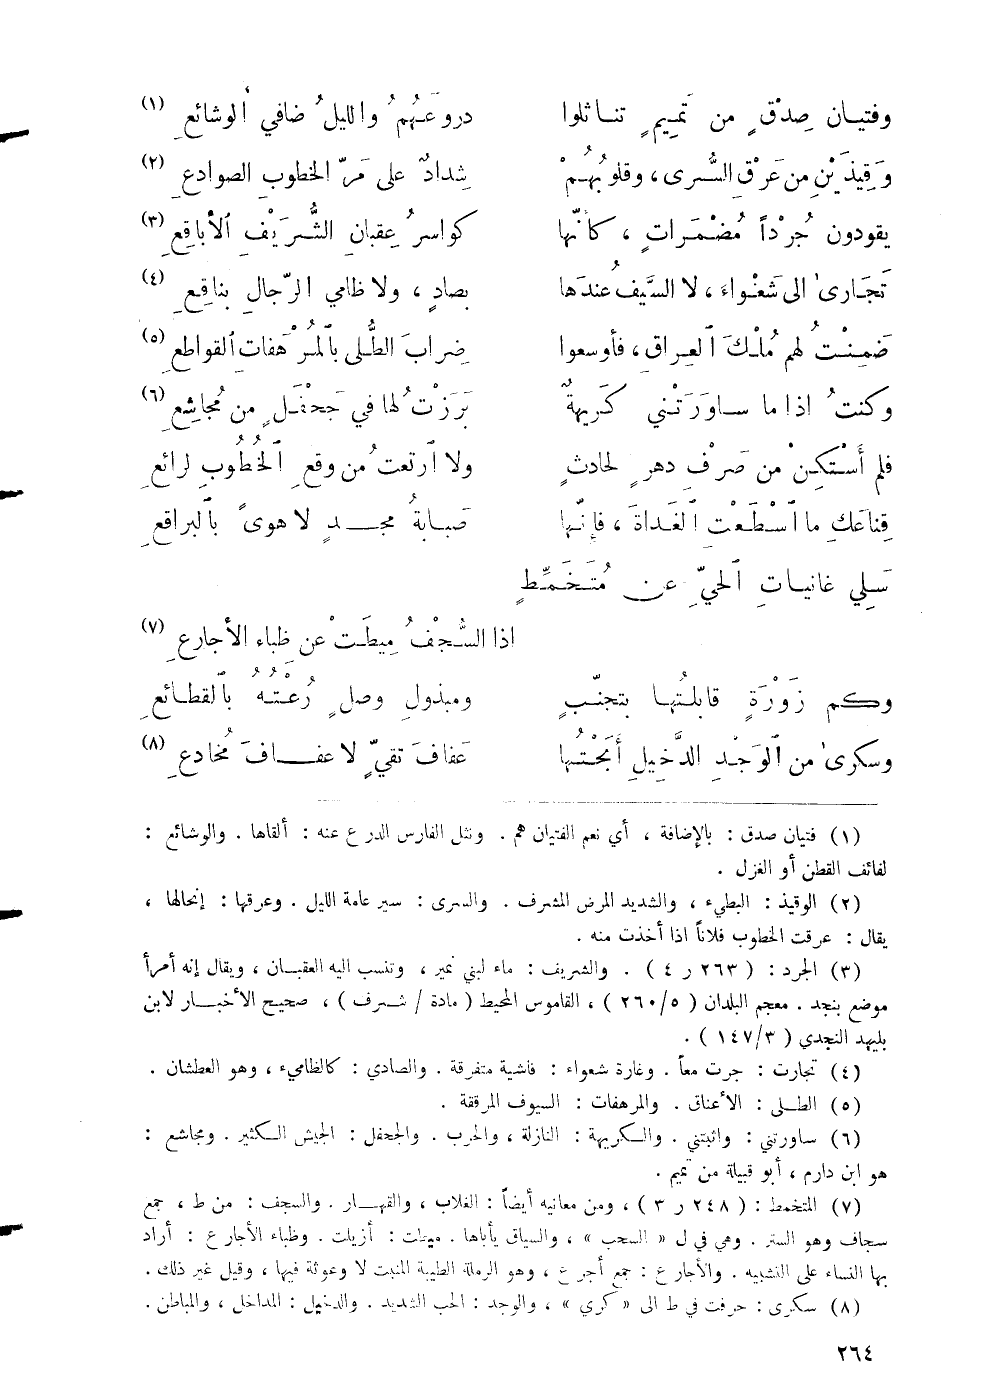 وفتيان صِدْقٍ من تَميمٍ تناثلوا دروعَهُمُ والليلُ ضافي ٱلوشائعِ (١)
وَقِيذَيْنِ من عَرْقِ السُّرى، وقلوبُهُمْ شِدادٌ على مَرِّ الخطوبِ الصوادعِ (٢)
يقودون جُرْداً مُضْمَراتٍ، كأنّها كواسرُ عِقبانِ الشُّرَيْفِ ٱلأباقعِ (٣)
تَجَارىٰ الى شَعْواءَ، لا السَّيفُ عندَها بصادٍ، ولا ظامي الرّجالِ بناقِعِ (٤)
ضَمِنْتُ لهم مُلْكَ ٱلعِراقِ، فأوسعوا ضِرابَ الطُّلى بٱلمُرْهَفاتِ ٱلقواطعِ (٥)
وكنتُ اذا ما ساوَرَتْني كَريهةٌ بَرَزْتُ لها في جَحْفَلٍ من مُجاشِعِ (٦)
فلم أَسْتَكِنْ من صَرْفِ دهرٍ لحادثٍ ولا ٱرتعتُ من وقعِ ٱلخُطُوبِ لرائعِ
قِناعَكِ ما ٱسْطَعْتِ ٱلغَداةَ، فإنّها صَبابةُ مجدٍ لا هوىً بٱلبراقعِ
سَلِي غانياتِ ٱلحيِّ عن مُتَخَمِّطٍ
اذا السُّجْفُ مِيطَتْ عن ظباء الأجارعِ (٧)
وكم زَوْرَةٍ قابلتُها بتجنّبٍ ومبذولِ وصلٍ رُعْتُهُ بٱلقطائعِ
وسكرىٰ من ٱلوَجْدِ الدَّخِيلِ أَبَحْتُها عفافَ تقيٍّ لا عفافَ مُخادعِ (٨)
(١) فتيان صدق: بالإضافة، أي نعم الفتيان هم. ونثل الفارس الدرع عنه: ألقاها. والوشائع:
لفائف القطن أو الغزل.
(٢) الوقيذ: البطيء، والشديد المرض المشرف. والسرى: سير عامة الليل. وعرقها: إنحالها،
يقال: عرقت الخطوب فلاناً اذا أخذت منه.
(٣) الجرد: (٢٦٣ ر ٤). والشريف: ماء لبني نمير، وتنسب اليه العقبان، ويقال إنه أمرأ
موضع بنجد. معجم البلدان (٢٦٠/٥)، القاموس المحيط (مادة / شرف)، صحيح الأخبار لابن
بليهد النجدي (١٤٧/٣).
(٤) تجارت: جرت معاً. وغارة شعواء: فاشية متفرقة. والصادي: كالظامىء، وهو العطشان.
(٥) الطلى: الأعناق. والمرهفات: السيوف المرققة.
(٦) ساورتني: واثبتني. والكريهة: النازلة، والحرب. والجحفل: الجيش الكثير. ومجاشع:
هو ابن دارم، أبو قبيلة من تميم.
(٧) المتخمط: (٢٤٨ ر ٣)، ومن معانيه أيضاً: الغلاب، والقهار. والسجف: من ط، جمع
سجاف وهو الستر. وهي في ل «السحب»، والسياق يأباها. ميطت: أزيلت. وظباء الأجارع: أراد
بها النساء على التشبيه. والأجارع: جمع أجرع، وهو الرملة الطيبة المنبت لا وعوثة فيها، وقيل غير ذلك.
(٨) سكرى: حرفت في ط الى «كري»، والوجد: الحب الشديد. والدخيل: المداخل، والمباطن.
٢٦٤